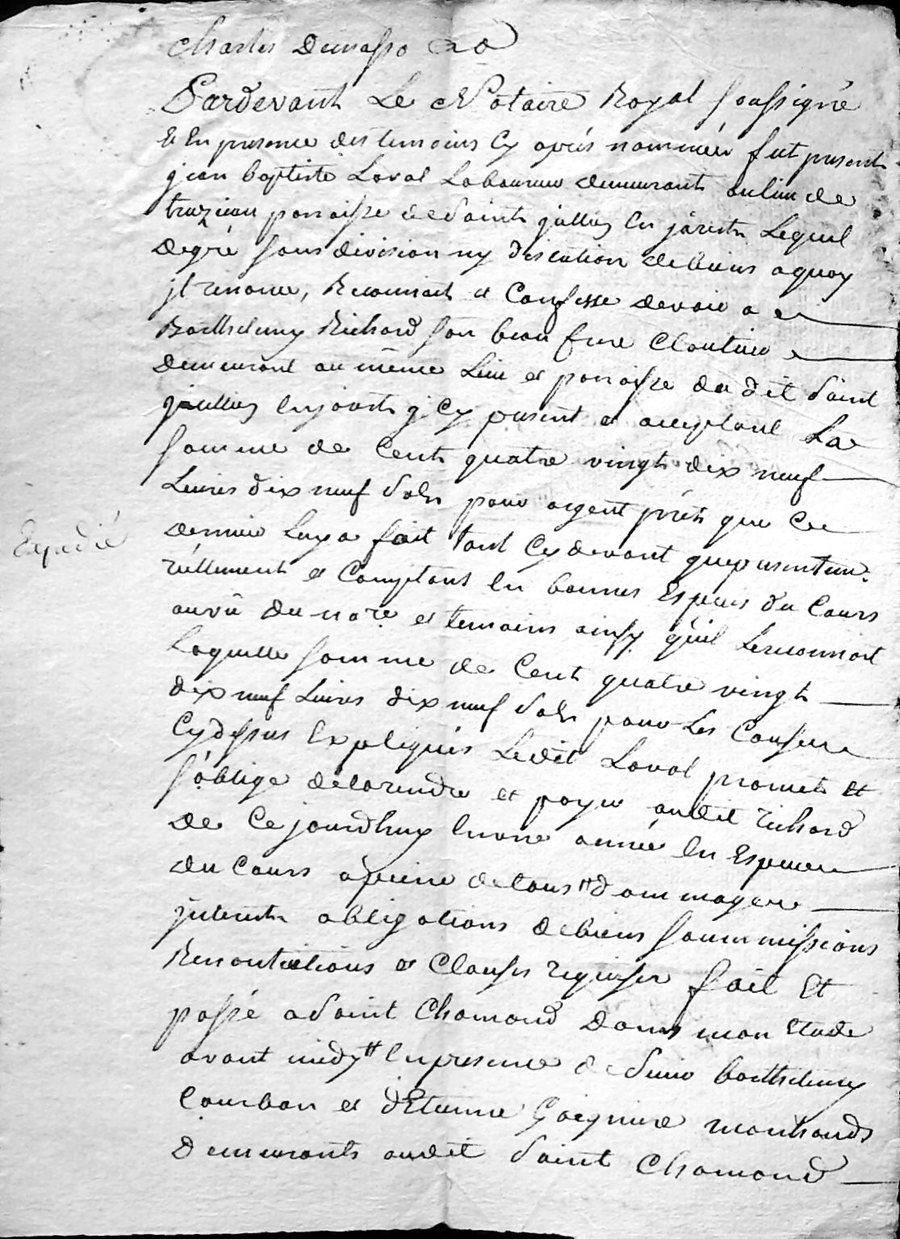 Charles
Pardevant Le Notaire Royal soussigné
Et En presence des temoins cy aprés nommées fut present
jean baptiste Laval Laboureur demeurant au lieu de
parroisse de Saint jullien En jarest Lequel
degré sans division ny discution de biens a quoy
jl renonce, Reconnait et Confesse devoir a
Barthelemy Richard son beau frere Cloutier
demeurant au même Lieu et parroisse du dit Saint
jullien En jarest jcy present et acceptant La
somme de Cent quatre vingt dix neuf
Livres dix neuf sols pour argent prêté que Ce
dernier Luy a fait tant cy devant que presentem.
réellement et Comptant En bonnes Especes du Cours
au vû du no.re et temoins ainsy qu'il Le reconnait
Laquelle somme de Cent quatre vingt
dix neuf Livres dix neuf sols pour Les Causes
Cydessus Expliqués Ledit Laval promet Et
s'oblige de la rendre et payer audit richard
de Ce jourdhuy En une année En Especes
du Cours a peine de tous dommages
jnterets obligations de biens soummissions
Renontiations et Clauses requises fait Et
passé a Saint Chamond dans mon Etude
avant midy En presence de sieur barthelemy
Courbon et d'Etienne marchands
demeurants audit Saint Chamond
Expedié